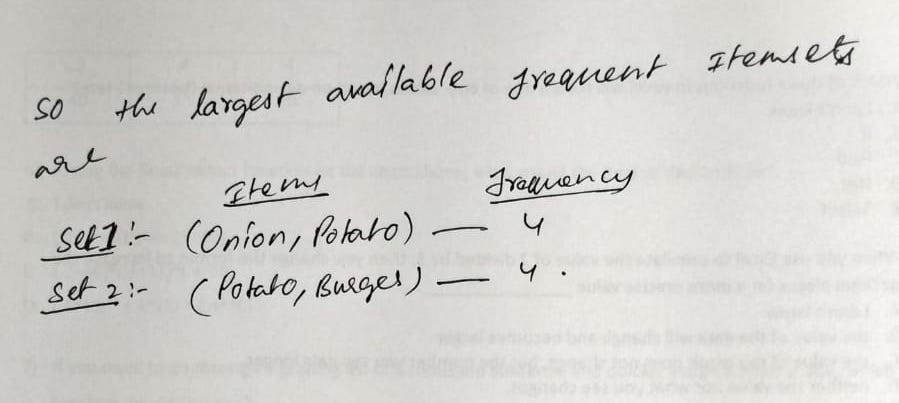 so the largest available frequent Itemsets
are
Items Frequency
Set 1 :- (Onion, Potato) — 4
Set 2 :- (Potato, Burger) — 4 .